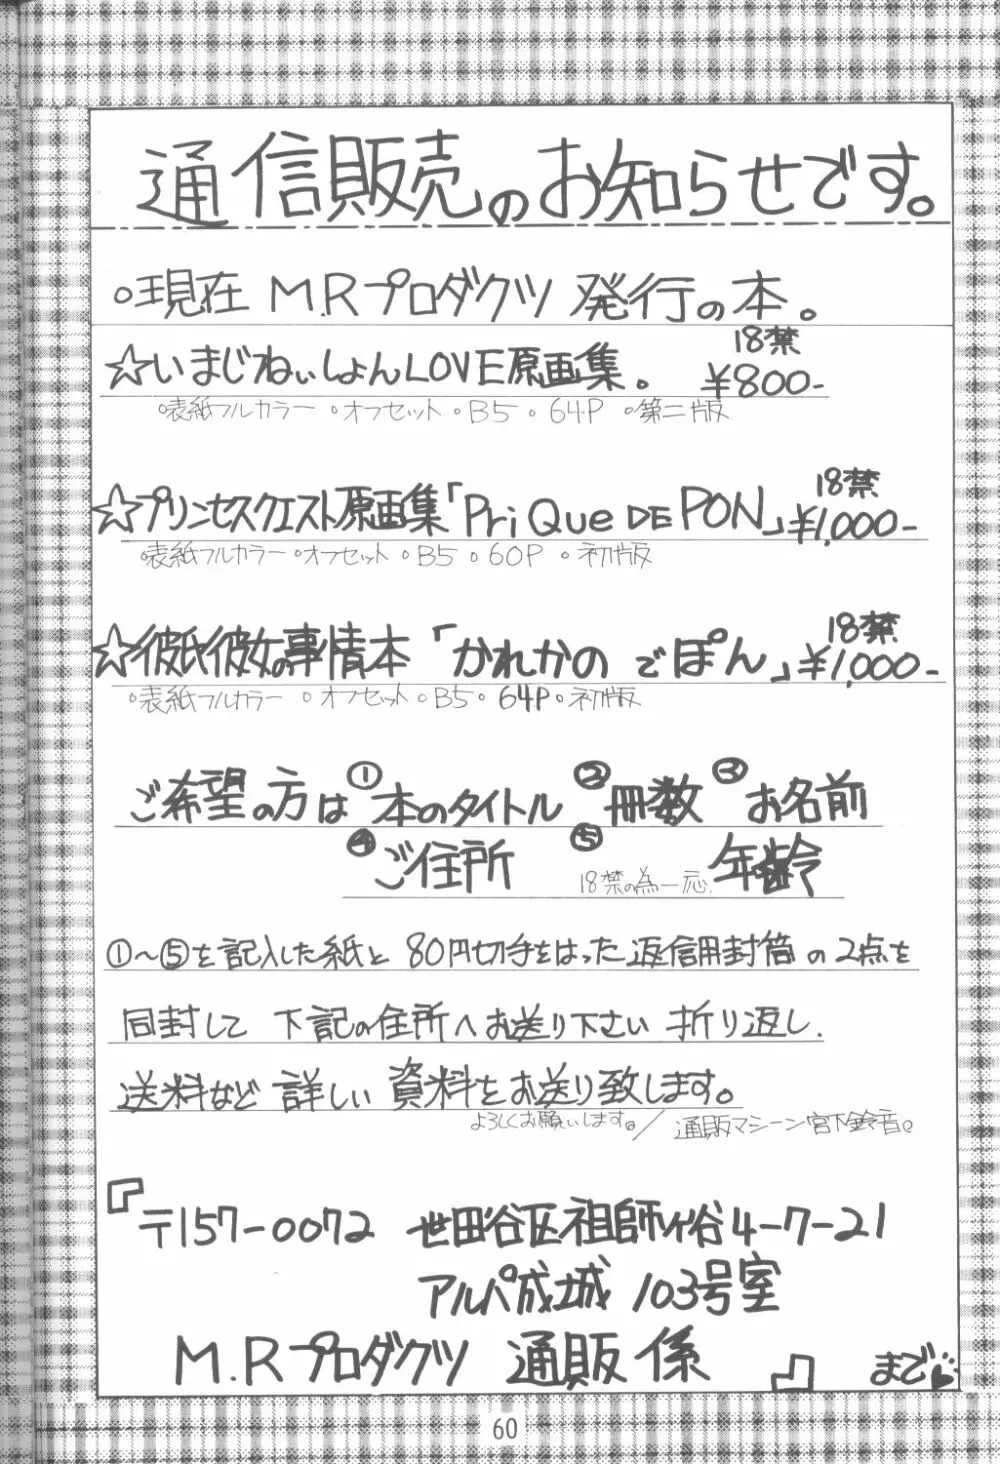 通信販売のお知らせです。
○現在 M.Rプロダクツ 発行の本。
☆いまじねぃしょんLOVE原画集。 18禁 ¥800-
○表紙フルカラー ○オフセット ○B5 ○64P ○第二版
☆プリンセスクエスト原画集「Pri Que DE PON」 18禁 ¥1,000-
○表紙フルカラー ○オフセット ○B5 ○60P ○初版
☆彼氏彼女の事情本「かれかの でぽん」 18禁 ¥1,000-
○表紙フルカラー ○オフセット ○B5 ○64P ○初版
ご希望の方は ①本のタイトル ②冊数 ③お名前
④ご住所 ⑤18禁の為一応、年齢
①～⑤を記入した紙と 80円切手をはった返信用封筒の2点を
同封して 下記の住所へお送り下さい 折り返し、
送料など 詳しい 資料をお送り致します。
よろしくお願いします。/ 通販マシーン宮下鈴音。
『〒157-0072 世田谷区祖師ヶ谷4-7-21
アルパ成城 103号室
M.Rプロダクツ 通販係』まで
60